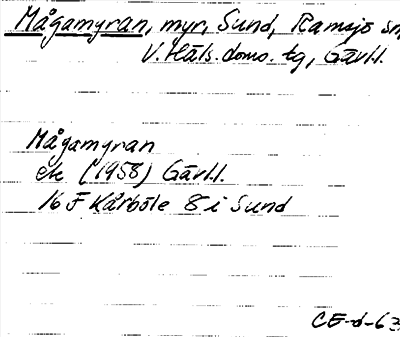 Mågamyran, myr, Sund, Ramsjö sn,
V. Häls. doms. tg, Gävl.l.
Mågamyran
ek (1958) Gävl.l.
16 F Kårböle 8 i Sund
CE-d-63